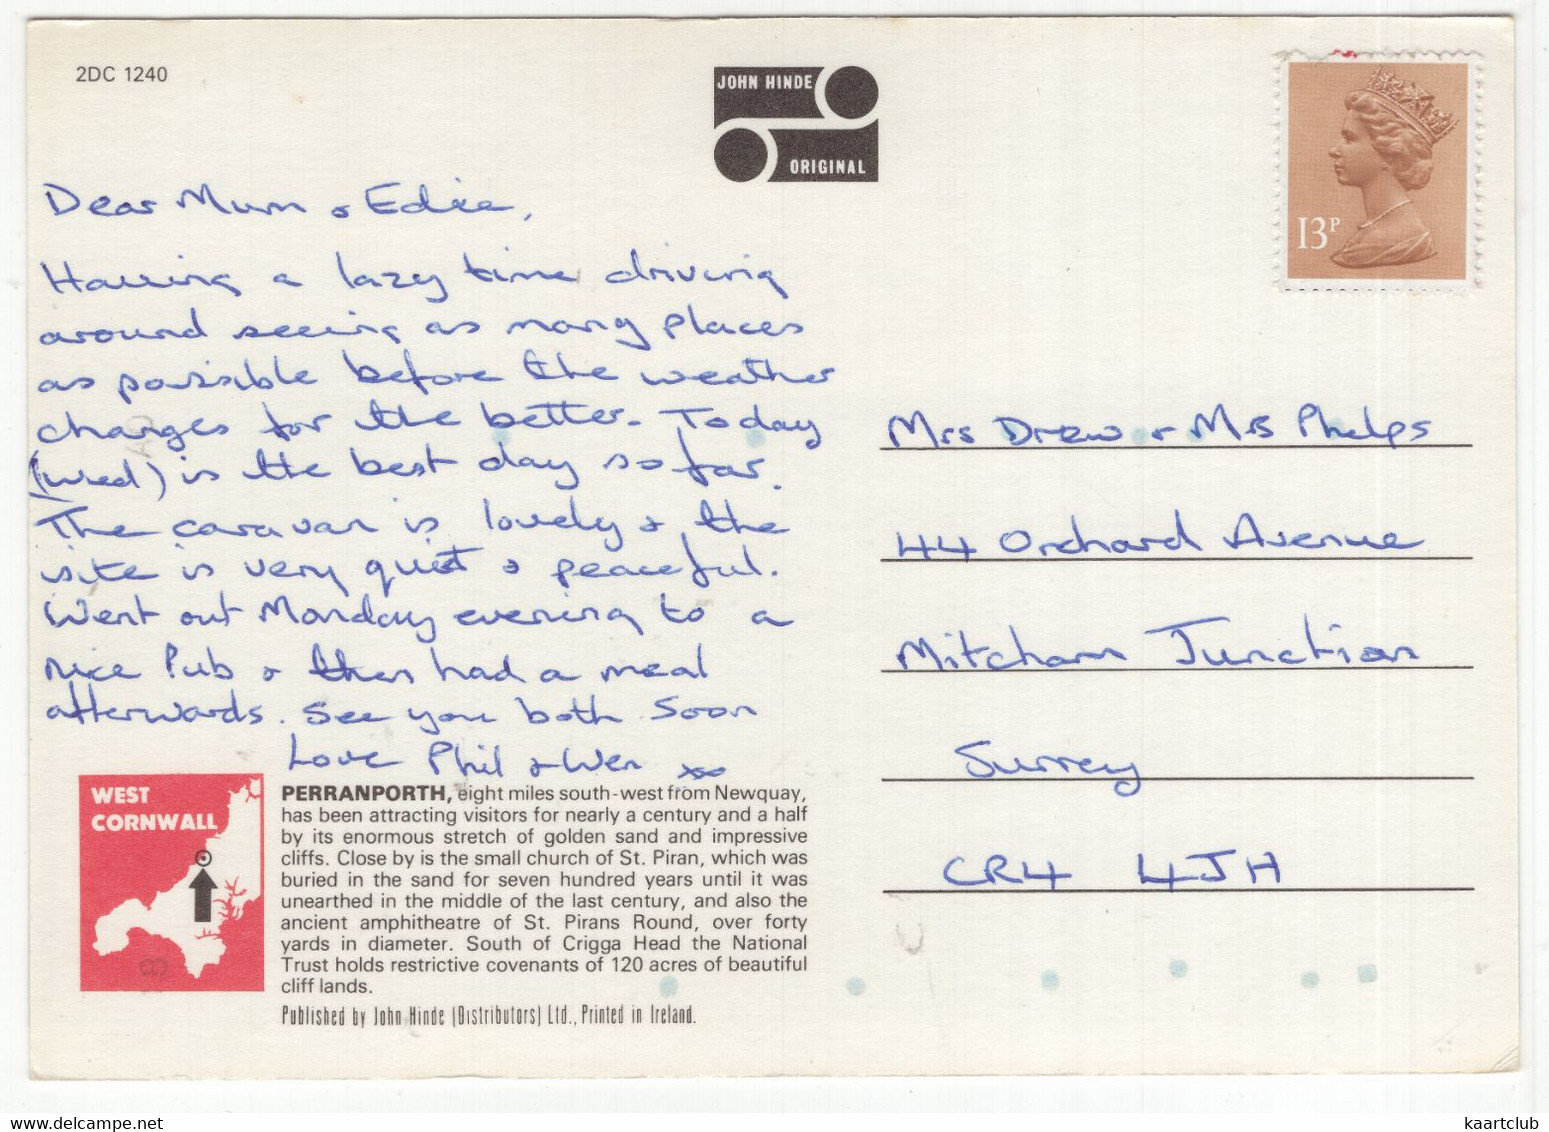 2DC 1240
JOHN HINDE
ORIGINAL
13P
Dear Mum & Edie,
Having a lazy time driving
around seeing as many places
as possible before the weather
changes for the better. Today
(Wed) is the best day so far.
The caravan is lovely & the
site is very quiet & peaceful.
Went out Monday evening to a
nice Pub & then had a meal
afterwards. See you both soon
Love Phil & Wen xxx
Mrs Drew & Mrs Phelps
44 Orchard Avenue
Mitcham Junction
Surrey
CR4 4JH
WEST
CORNWALL
PERRANPORTH, eight miles south-west from Newquay,
has been attracting visitors for nearly a century and a half
by its enormous stretch of golden sand and impressive
cliffs. Close by is the small church of St. Piran, which was
buried in the sand for seven hundred years until it was
unearthed in the middle of the last century, and also the
ancient amphitheatre of St. Pirans Round, over forty
yards in diameter. South of Crigga Head the National
Trust holds restrictive covenants of 120 acres of beautiful
cliff lands.
Published by John Hinde (Distributors) Ltd., Printed in Ireland.
www.delcampe.net
kaartclub